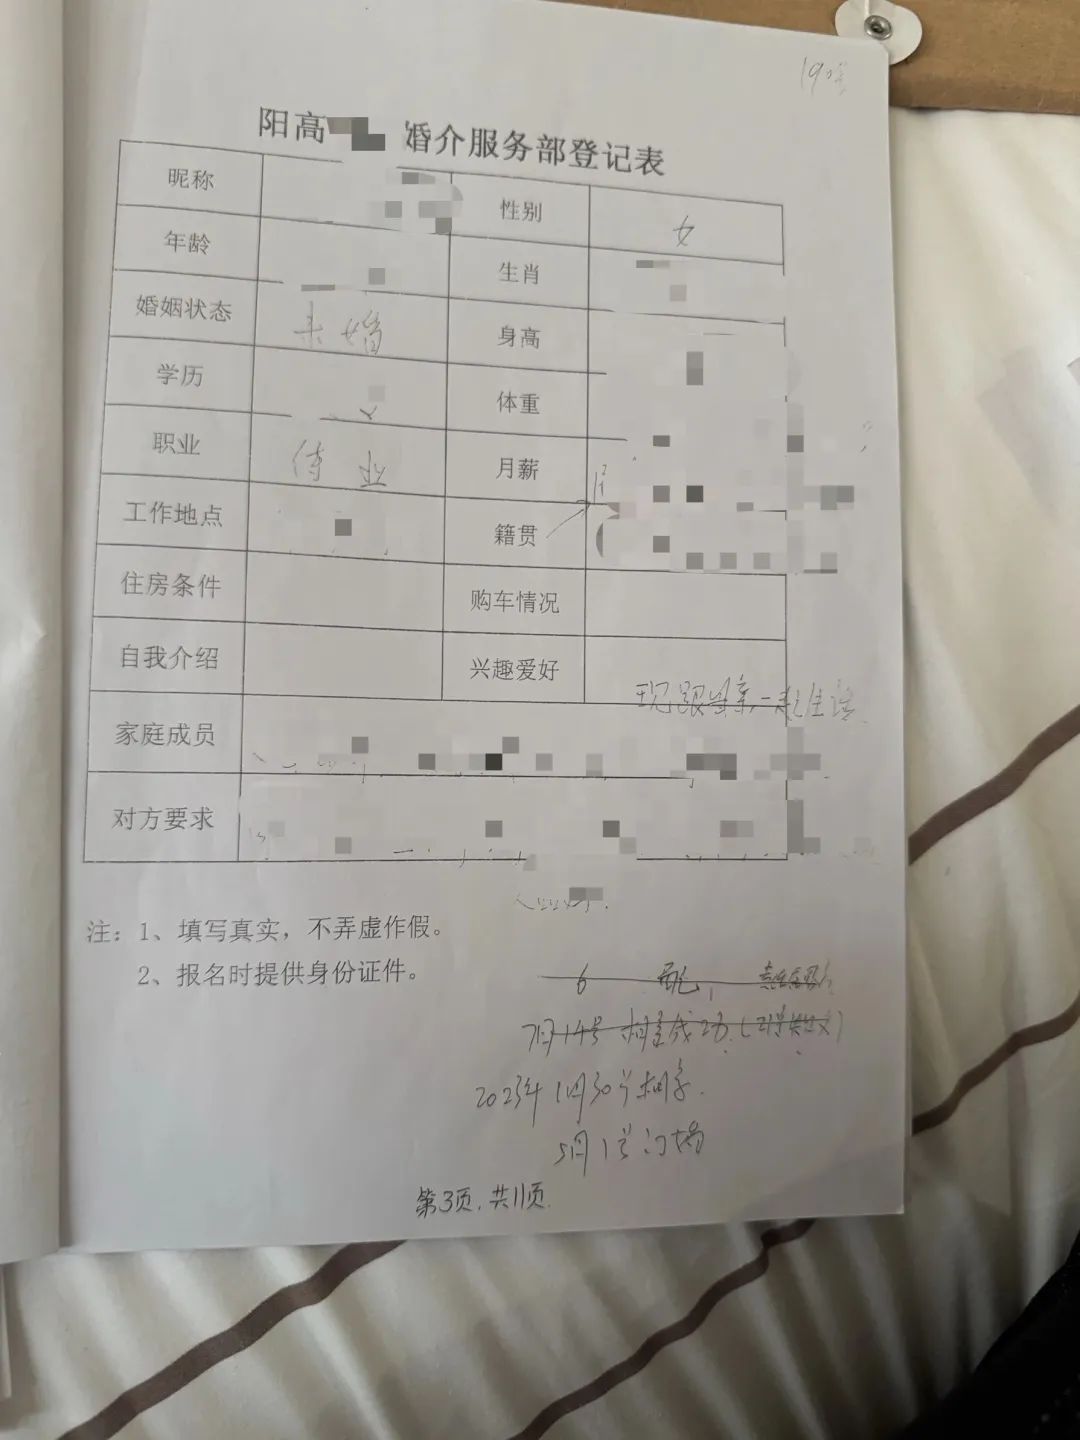 阳高 婚介服务部登记表
昵称 性别 女
年龄 生肖
婚姻状态 未婚 身高
学历 体重
职业 待业 月薪
工作地点 籍贯
住房条件 购车情况
自我介绍 兴趣爱好
现跟母亲一起生活
家庭成员
对方要求
注：1、填写真实，不弄虚作假。
2、报名时提供身份证件。
6
7月14号
2023年1月30号相亲.
5月1号订婚
第3页.共11页.